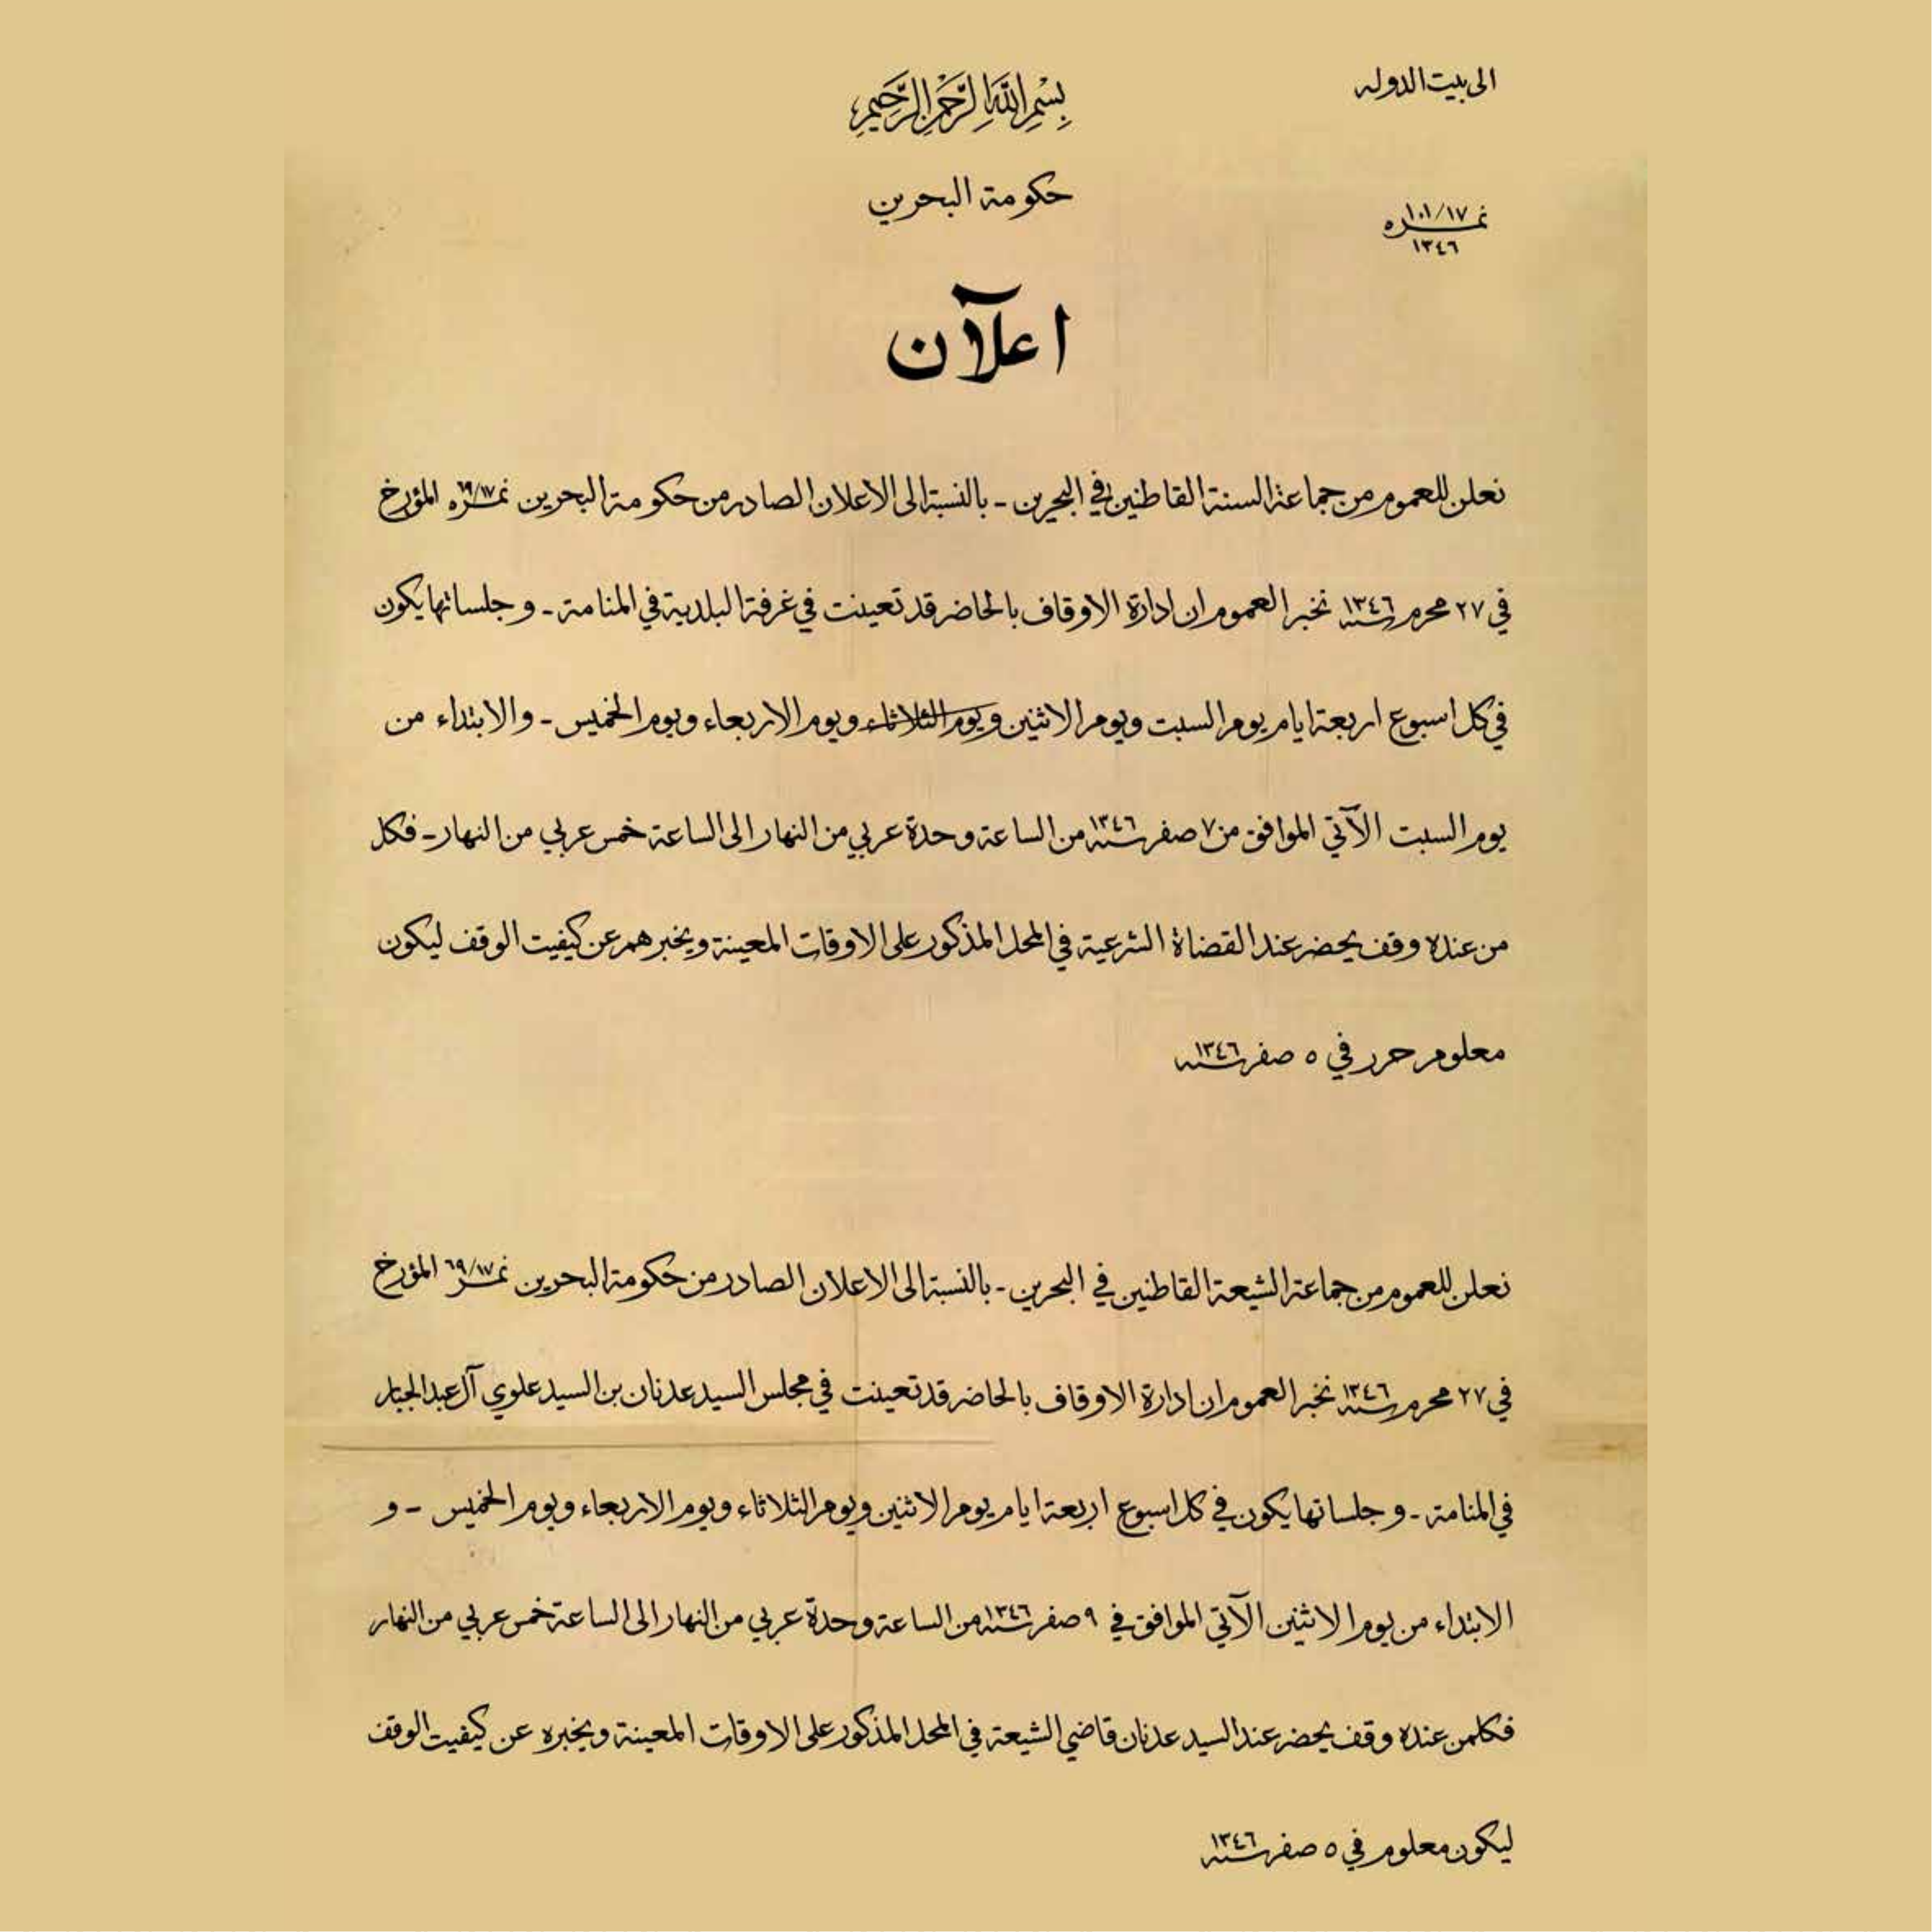 الى بيت الدوله
بِسْمِ اللَّهِ الرَّحْمَنِ الرَّحِيمِ
حكومة البحرين
نمره ١٠١/١٧
١٣٤٦
اعلآن
نعلن للعموم من جماعة السنة القاطنين في البحرين - بالنسبة الى الاعلان الصادر من حكومة البحرين نمره ٦٩/١٧ المؤرخ
في ٢٧ محرم سنه ١٣٤٦ نخبر العموم ان ادارة الاوقاف بالحاضر قد تعينت في غرفة البلدية في المنامة - و جلساتها يكون
في كل اسبوع اربعة ايام يوم السبت ويوم الاثنين ويوم الثلاثاء ويوم الاربعاء ويوم الخميس - والابتداء من
يوم السبت الآتي الموافق من ٧ صفر سنه ١٣٤٦ من الساعة وحدة عربي من النهار الى الساعة خمس عربي من النهار - فكل
من عنده وقف يحضر عند القضاة الشرعية في المحل المذكور على الاوقات المعينة ويخبرهم عن كيفيت الوقف ليكون
معلوم حرر في ٥ صفر سنه ١٣٤٦
نعلن للعموم من جماعة الشيعة القاطنين في البحرين - بالنسبة الى الاعلان الصادر من حكومة البحرين نمر ٦٩/١٧ المؤرخ
في ٢٧ محرم سنه ١٣٤٦ نخبر العموم ان ادارة الاوقاف بالحاضر قد تعينت في مجلس السيد عدنان بن السيد علوي آل عبد الجبار
في المنامة - و جلساتها يكون في كل اسبوع اربعة ايام يوم الاثنين ويوم الثلاثاء ويوم الاربعاء ويوم الخميس - و
الابتداء من يوم الاثنين الآتي الموافق في ٩ صفر سنه ١٣٤٦ من الساعة وحدة عربي من النهار الى الساعة خمس عربي من النهار
فكلمن عنده وقف يحضر عند السيد عدنان قاضي الشيعة في المحل المذكور على الاوقات المعينة ويخبره عن كيفيت الوقف
ليكون معلوم في ٥ صفر سنه ١٣٤٦